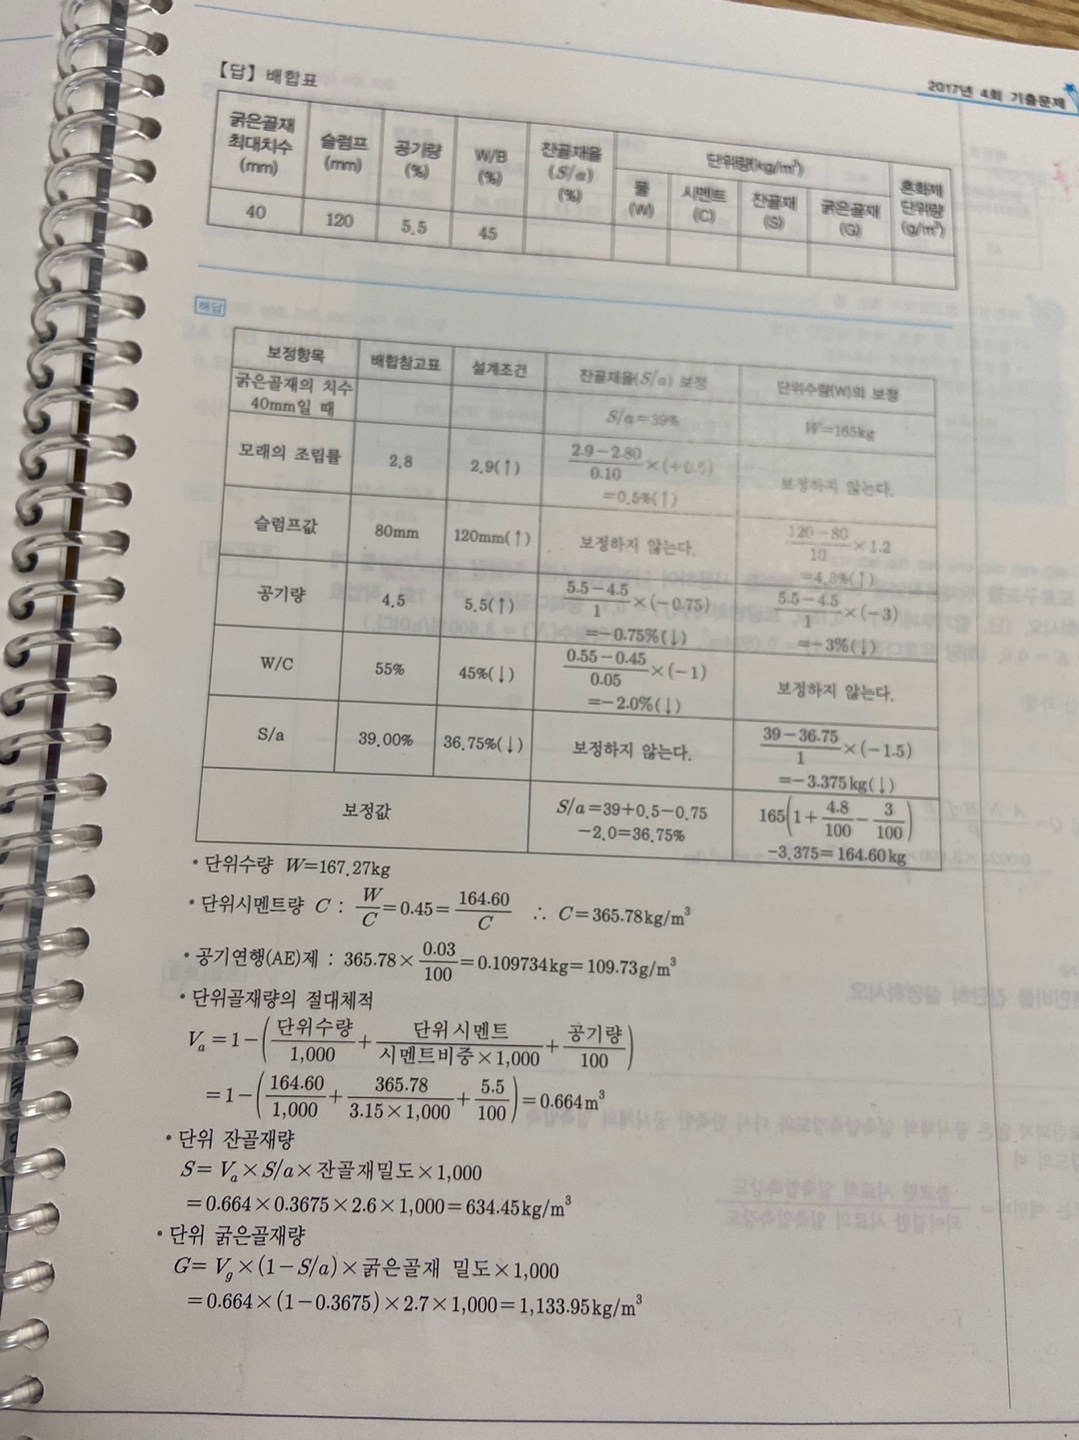 2017년 4회 기출문제
【답】 배합표
굵은골재 최대치수 (mm) 슬럼프 (mm) 공기량 (%) W/B (%) 잔골재율 (S/a) (%) 단위량(kg/m³) 혼화제 단위량 (g/m³)
물 (W) 시멘트 (C) 잔골재 (S) 굵은골재 (G)
40 120 5.5 45
해답
보정항목 배합참고표 설계조건 잔골재율(S/a) 보정 단위수량(W)의 보정
굵은골재의 치수 40mm일 때 S/a=39% W=165kg
모래의 조립률 2.8 2.9(↑) (2.9-2.80)/0.10×(+0.5) =0.5%(↑) 보정하지 않는다.
슬럼프값 80mm 120mm(↑) 보정하지 않는다. (120-80)/10×1.2 =4.8%(↑)
공기량 4.5 5.5(↑) (5.5-4.5)/1×(-0.75) =-0.75%(↓) (5.5-4.5)/1×(-3) =-3%(↓)
W/C 55% 45%(↓) (0.55-0.45)/0.05×(-1) =-2.0%(↓) 보정하지 않는다.
S/a 39.00% 36.75%(↓) 보정하지 않는다. (39-36.75)/1×(-1.5) =-3.375kg(↓)
보정값 S/a=39+0.5-0.75 -2.0=36.75% 165(1+4.8/100-3/100) -3.375=164.60kg
• 단위수량 W=167.27kg
• 단위시멘트량 C : W/C=0.45=164.60/C ∴ C=365.78kg/m³
• 공기연행(AE)제 : 365.78×0.03/100=0.109734kg=109.73g/m³
• 단위골재량의 절대체적
Va=1-(단위수량/1,000+단위시멘트/시멘트비중×1,000+공기량/100)
=1-(164.60/1,000+365.78/3.15×1,000+5.5/100)=0.664m³
• 단위 잔골재량
S=Va×S/a×잔골재밀도×1,000
=0.664×0.3675×2.6×1,000=634.45kg/m³
• 단위 굵은골재량
G=Vg×(1-S/a)×굵은골재 밀도×1,000
=0.664×(1-0.3675)×2.7×1,000=1,133.95kg/m³